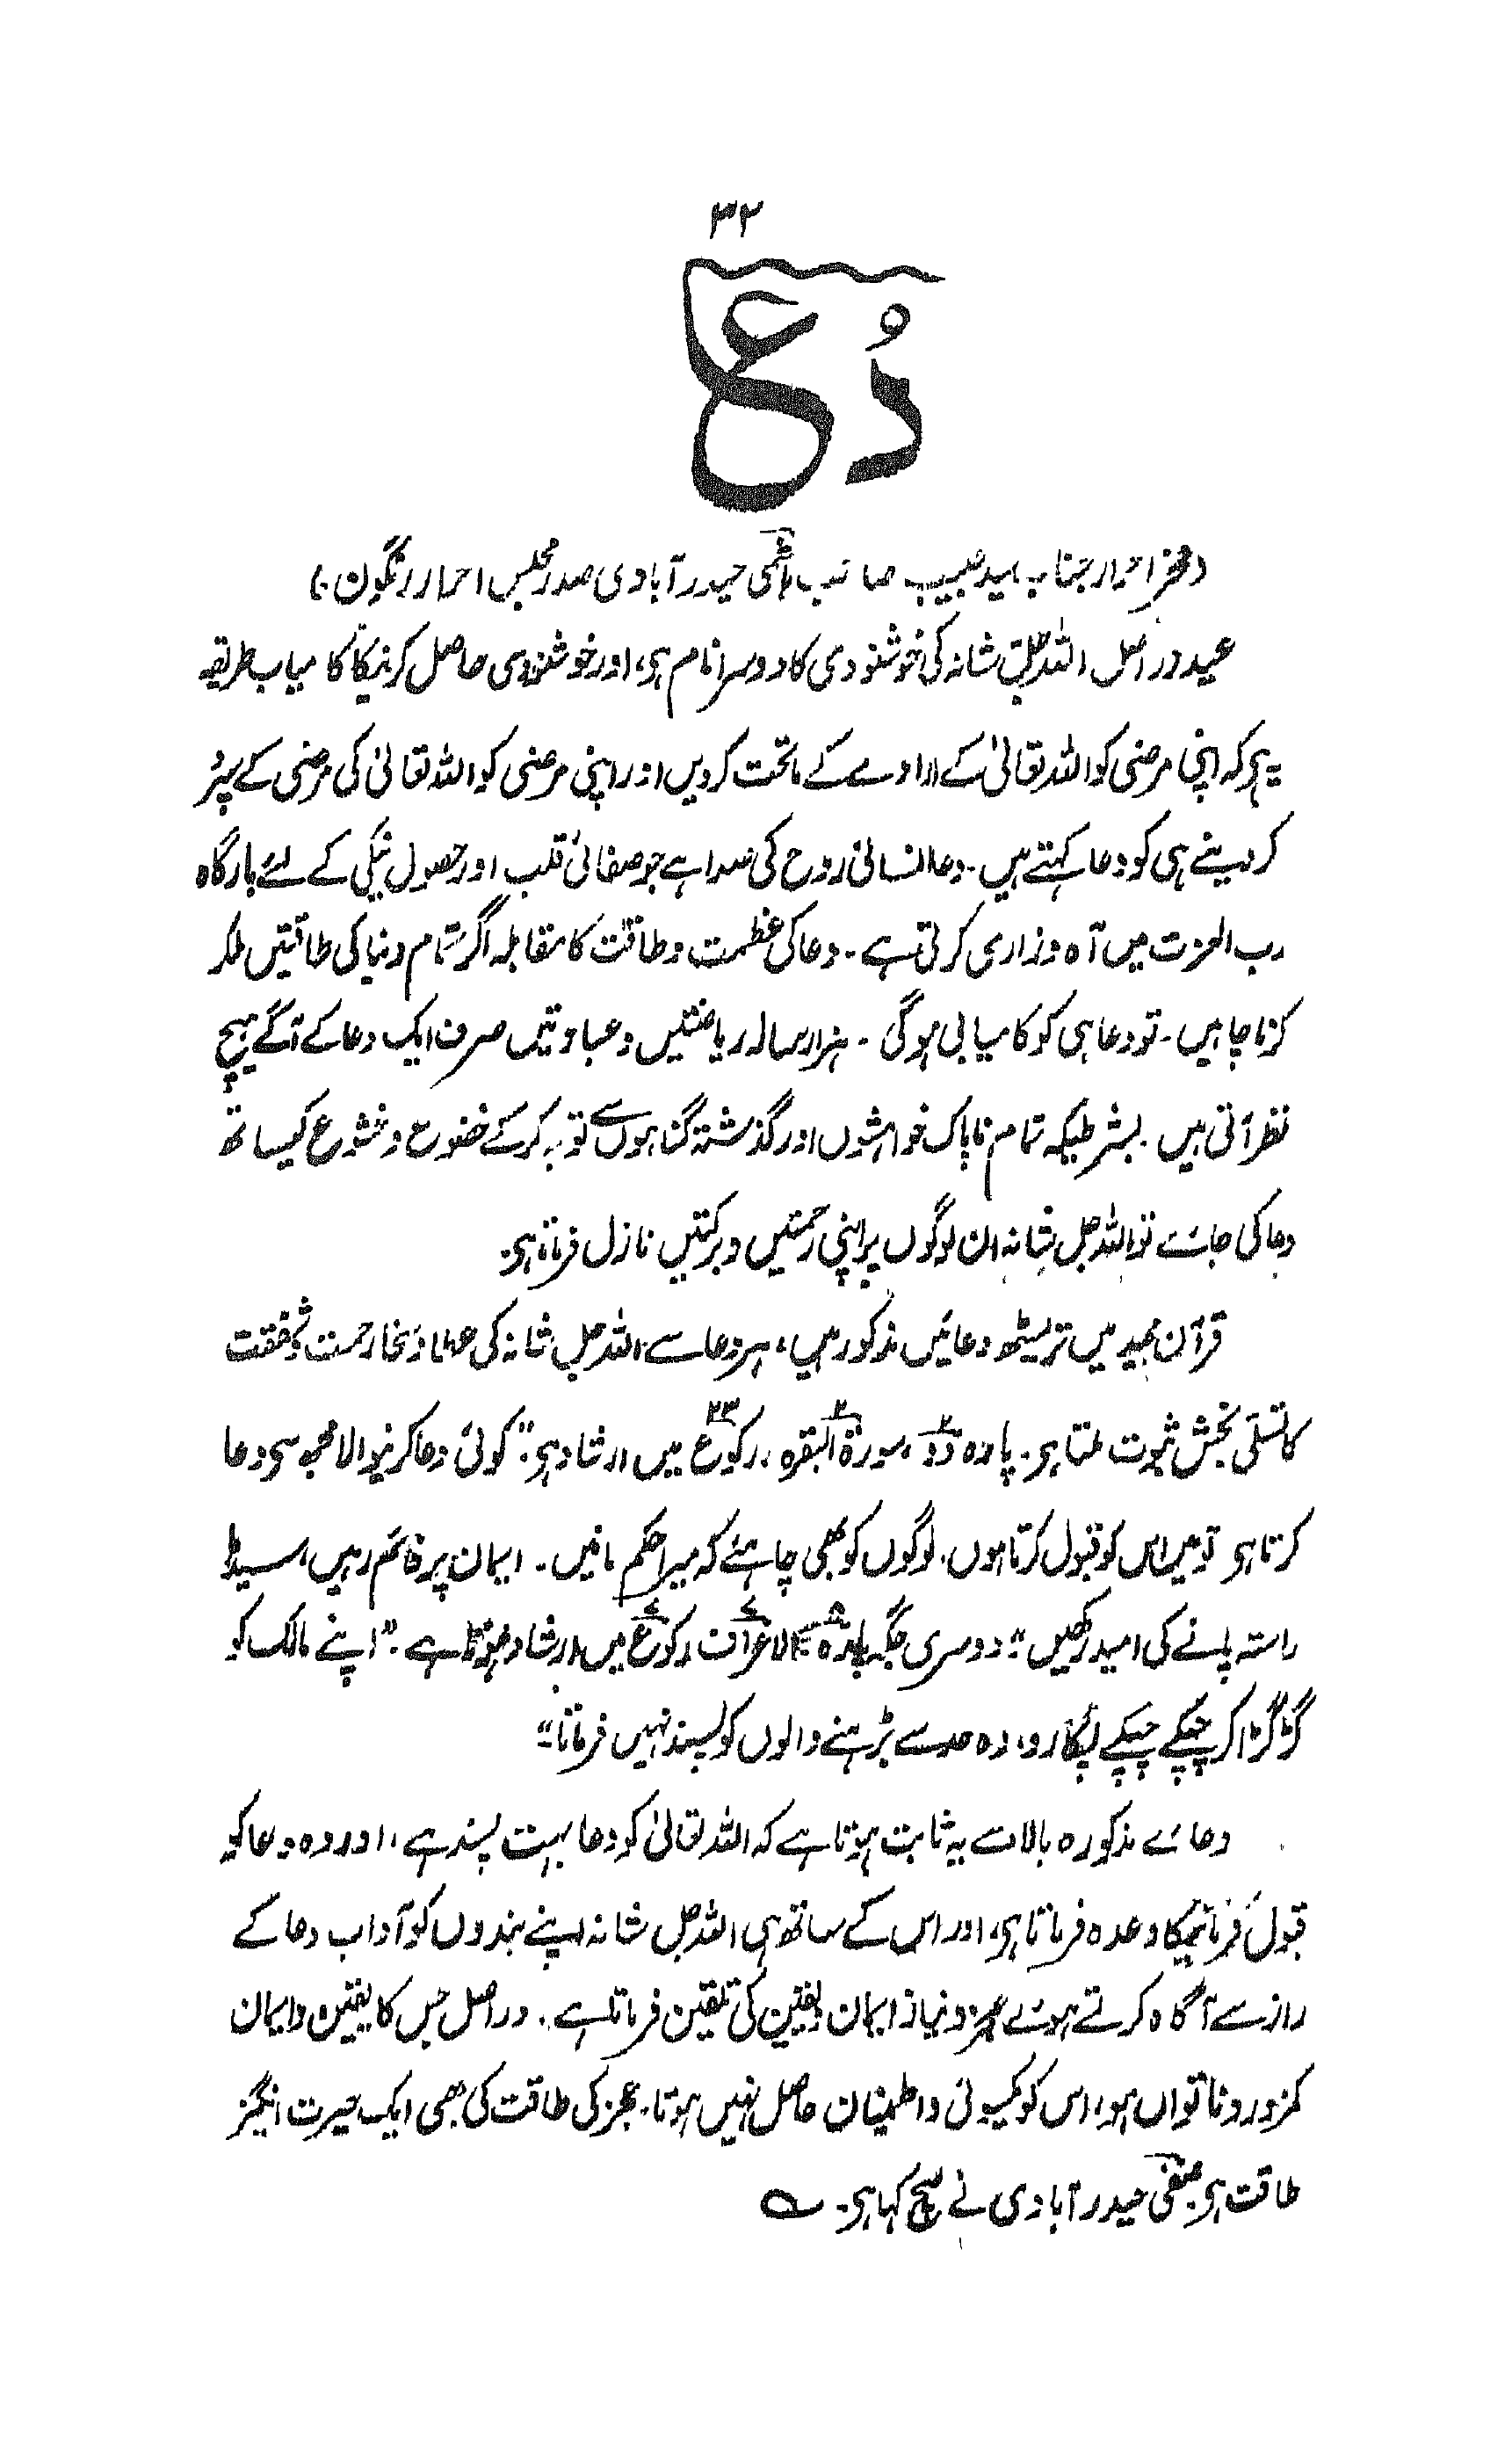 ۳۲
دُعا
(فخر احرار جناب سید حبیب صاحب ہاشمی حیدرآبادی صدر مجلس احرار رنگون)
عید در اصل اللہ جل شانہ کی خوشنودی کا دوسرا نام ہی، اور خوشنودی حاصل کرنیکا کامیاب طریقہ
یہ ہی کہ اپنی مرضی کو اللہ تعالیٰ کے ارادے کے ماتحت کردیں اور اپنی مرضی کو اللہ تعالیٰ کی مرضی کے سپرد
کر دینے ہی کو دعا کہتے ہیں۔ دعا انسانی روح کی صدا ہے جو صفائی قلب اور حصول نیکی کے لئے بارگاہ
رب العزت میں آہ و زاری کرتی ہے۔ دعا کی عظمت و طاقت کا مقابلہ اگر تمام دنیا کی طاقتیں ملکر
کرنا چاہیں۔ تو دعا ہی کو کامیابی ہوگی۔ ہزار سالہ ریاضتیں و عبادتیں صرف ایک دعا کے آگے ہیچ
نظر آتی ہیں۔ بشرطیکہ تمام ناپاک خواہشوں اور گذشتہ گناہوں سے توبہ کر کے خضوع و خشوع کیساتھ
دعا کی جائے تو اللہ جل شانہ ان لوگوں پر اپنی رحمتیں و برکتیں نازل فرماتا ہی۔
قرآن مجید میں تریسٹھ دعائیں مذکور ہیں، ہر دعا سے اللہ جل شانہ کی عطا و سخا رحمت و شفقت
کا تسلی بخش ثبوت ملتا ہی۔ پارہ دو ۲، سورۃ البقرہ ۲، رکوع ۲۳ میں ارشاد ہی۔ "کوئی دعا کرنیوالا مجھ سی دعا
کرتا ہی تو میں اس کو قبول کرتا ہوں۔ لوگوں کو بھی چاہئے کہ میرا حکم مانیں۔ ایمان پر قائم رہیں، سیدھا
راستہ پانے کی امید رکھیں" دوسری جگہ پارہ ۸ الاعراف ۷ رکوع ۷ میں ارشاد ہوتا ہے۔ "اپنے مالک کو
گڑگڑا کر چپکے چپکے پکارو، وہ حد سے بڑہنے والوں کو پسند نہیں فرماتا"
دعائے مذکورہ بالا سے یہ ثابت ہوتا ہے کہ اللہ تعالیٰ کو دعا بہت پسند ہے، اور وہ دعا کو
قبول فرمانیکا وعدہ فرماتا ہی، اور اس کے ساتھ ہی اللہ جل شانہ اپنے بندوں کو آداب دعا کے
راز سے آگاہ کرتے ہوئے عجز و نیاز ایمان و یقین کی تلقین فرماتا ہے۔ در اصل جس کا یقین و ایمان
کمزور و ناتواں ہو، اس کو یکسوئی و اطمینان حاصل نہیں ہوتا۔ عجز کی طاقت کی بھی ایک حیرت انگیز
طاقت ہی۔ صفی حیدرآبادی نے سچ کہا ہی۔